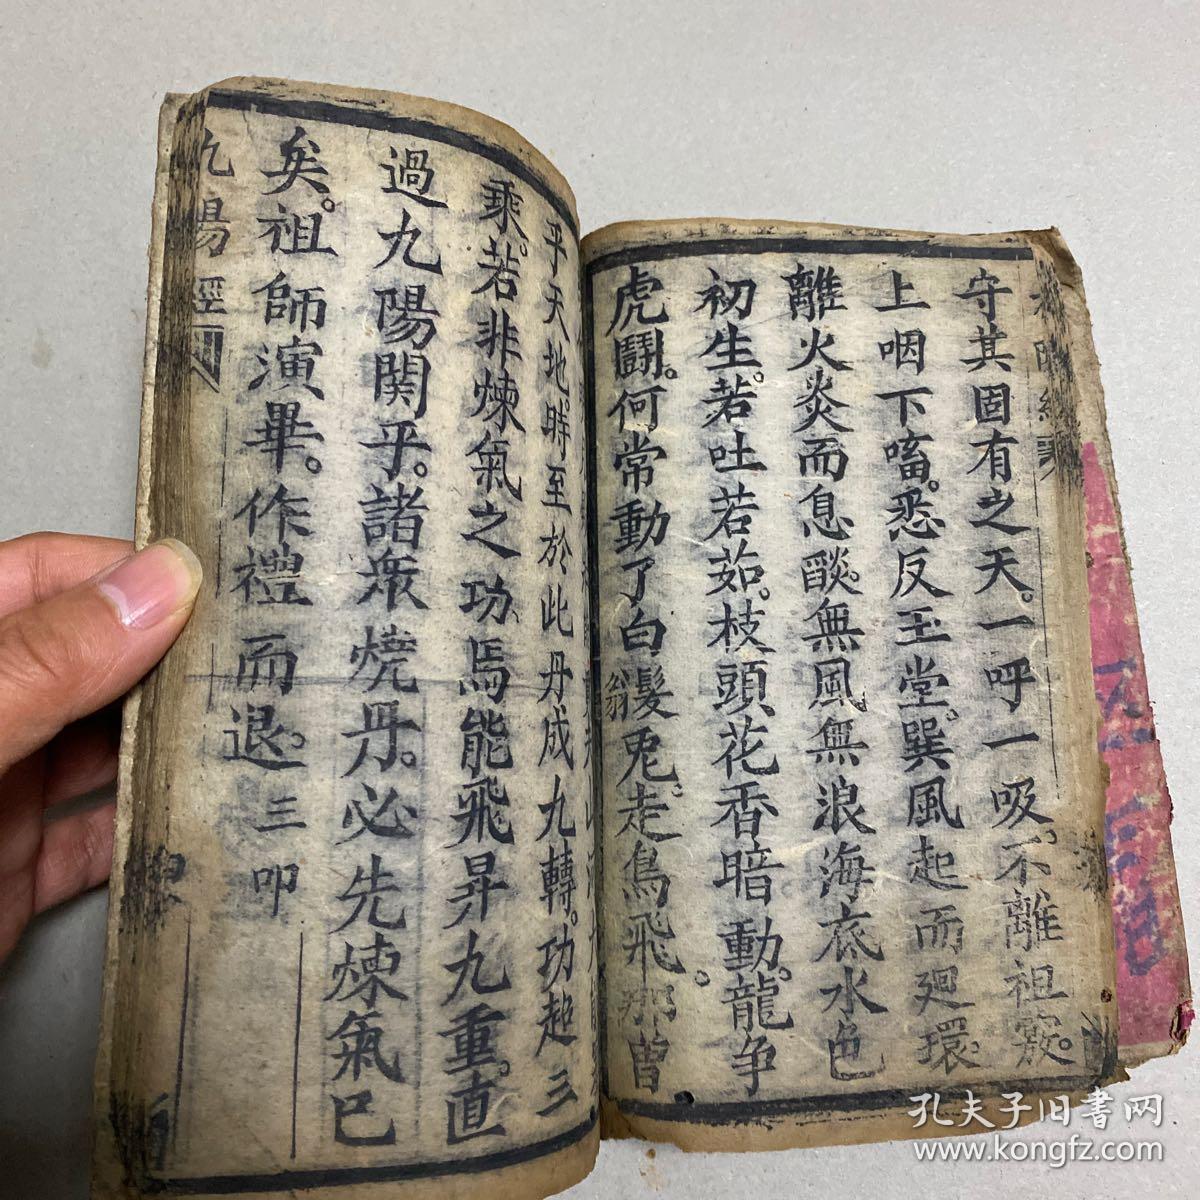 守其固有之天。一呼一吸。不離祖竅。
上咽下畜。悉反玉堂。巽風起而廻環。
離火炎而息燄。無風無浪海底水色
初生。若吐若茹。枝頭花香暗動。龍争
虎鬪。何常動了白髮翁兎走烏飛。那曽
乎天地時至於此丹成九轉。功超三
乘。若非煉氣之功。焉能飛昇九重。直
過九陽関乎。諸衆燒丹。必先煉氣已
矣。祖師演畢。作禮而退。三叩
九陽經
孔夫子旧書网
www.kongfz.com